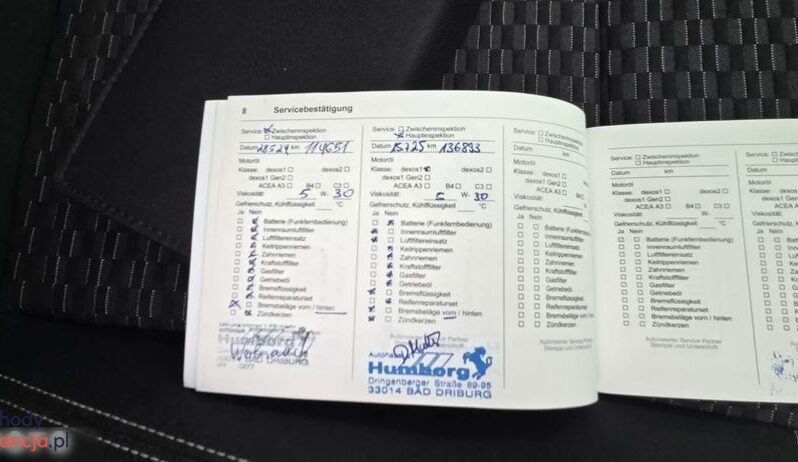 8 Servicebestätigung
Service: Zwischeninspektion
Hauptinspektion
Datum 28524 km 114651
Motoröl
Klasse: dexos1 dexos2
dexos1 Gen2
ACEA A3 B4 C3
Viskosität: 5 W- 30
Gefrierschutz, Kühlflüssigkeit °C
Ja Nein
Batterie (Funkfernbedienung)
Innenraumluftfilter
Luftfiltereinsatz
Keilrippenriemen
Zahnriemen
Kraftstofffilter
Gasfilter
Getriebeöl
Bremsflüssigkeit
Reifenreparaturset
Bremsbeläge vorn / hinten
Zündkerzen
DRIBURG
Service: Zwischeninspektion
Hauptinspektion
Datum 15725 km 136893
Motoröl
Klasse: dexos1 dexos2
dexos1 Gen2
ACEA A3 B4 C3
Viskosität: 5 W- 30
Gefrierschutz, Kühlflüssigkeit °C
Ja Nein
Batterie (Funkfernbedienung)
Innenraumluftfilter
Luftfiltereinsatz
Keilrippenriemen
Zahnriemen
Kraftstofffilter
Gasfilter
Getriebeöl
Bremsflüssigkeit
Reifenreparaturset
Bremsbeläge vorn / hinten
Zündkerzen
Autohaus
Humborg
Dringenberger Straße 89-95
33014 BAD DRIBURG
Service: Zwischeninspektion
Hauptinspektion
Datum km
Motoröl
Klasse: dexos1 dexos2
dexos1 Gen2
ACEA A3 B4 C3
Viskosität: W-
Gefrierschutz, Kühlflüssigkeit °C
Ja Nein
Batterie (Funkfernbedienung)
Innenraumluftfilter
Luftfiltereinsatz
Keilrippenriemen
Zahnriemen
Kraftstofffilter
Gasfilter
Getriebeöl
Bremsflüssigkeit
Reifenreparaturset
Bremsbeläge vorn / hinten
Zündkerzen
Autorisierter Service Partner
Stempel und Unterschrift
Service: Zwischeninspektion
Hauptinspektion
Datum km
Motoröl
Klasse: dexos1 dexos2
dexos1 Gen2
ACEA A3 B4 C3
Viskosität: W-
Gefrierschutz, Kühlflüssigkeit °C
Ja Nein
Batterie (Funkfernbedienung)
Innenraumluftfilter
Luftfiltereinsatz
Keilrippenriemen
Zahnriemen
Kraftstofffilter
Gasfilter
Getriebeöl
Bremsflüssigkeit
Reifenreparaturset
Bremsbeläge vorn / hinten
Zündkerzen
Autorisierter Service Partner
Stempel und Unterschrift
hody
ancja.pl